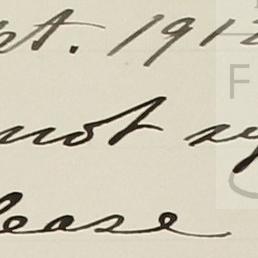 pt. 191
not
lease